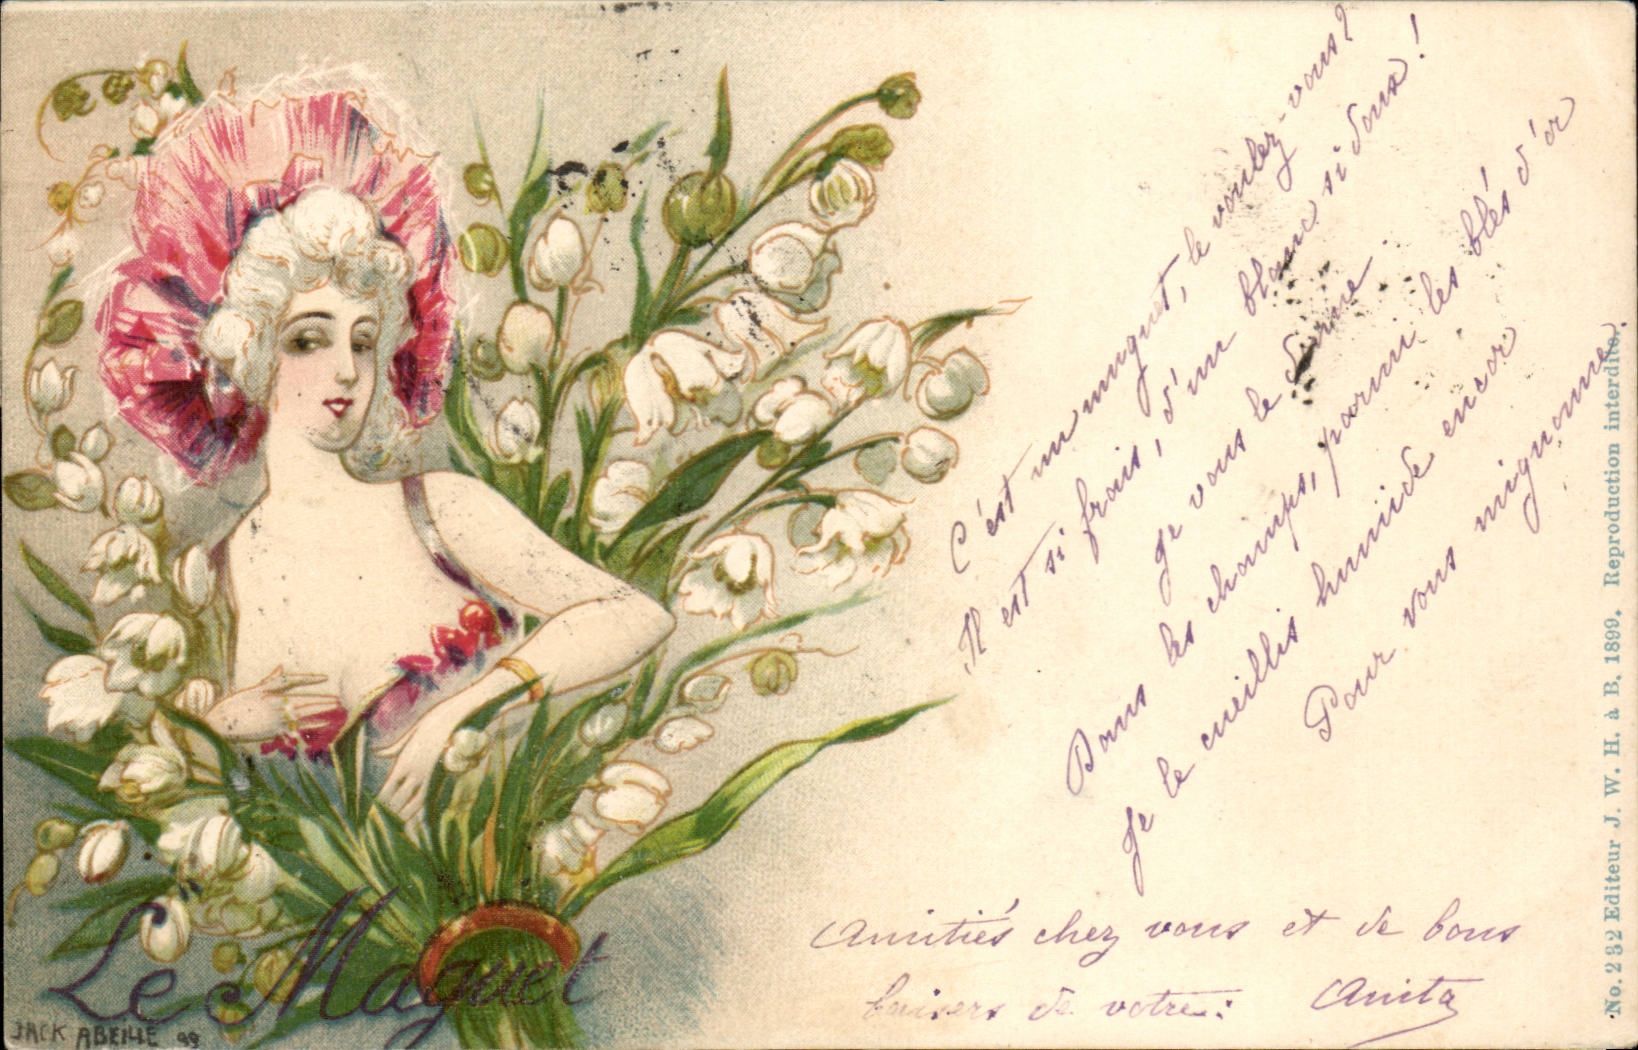 C'est un muguet, le voulez-vous?
Il est si frais, d'un blanc si doux!
Je vous le donne.
Dans les champs, parmi les blés d'or
Je le cueillis humide encor
Pour vous mignonne.
Amitiés chez vous et de bons
baisers de votre: Anita
Le Maguet
JACK ABEILLE 99
No. 232 Editeur J. W. H. à B. 1899. Reproduction interdite.